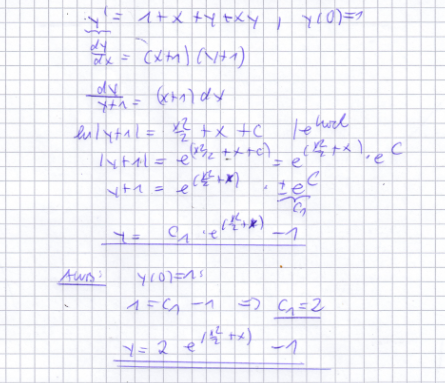 y' = 1+x+y+xy , y(0)=1
dy/dx = (x+1)(y+1)
dy/(y+1) = (x+1)dx
ln|y+1| = x²/2 + x + C |e hoch
|y+1| = e^(x²/2 + x + C) = e^(x²/2 + x) · e^C
y+1 = e^(x²/2 + x) · ±e^C
C₁
y = C₁ · e^(x²/2 + x) - 1
AWB: y(0)=1:
1 = C₁ - 1 ⇒ C₁ = 2
y = 2 e^(x²/2 + x) - 1